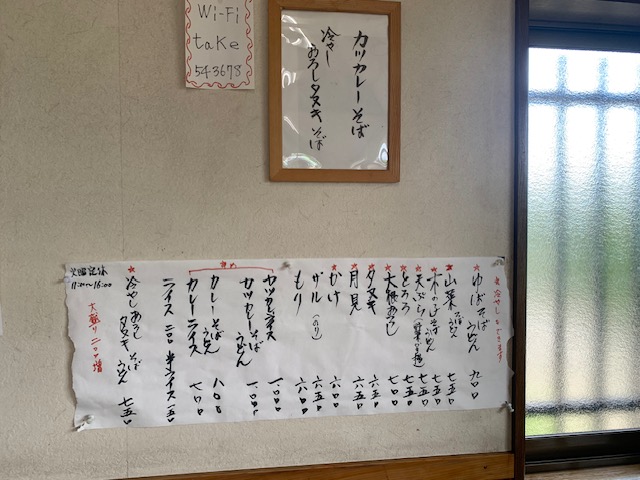 Wi-Fi
take
54-3678
カツカレーそば
冷やし
おろしタヌキそば
★冷やしもできます
★ゆばそばうどん 九〇〇
★山菜そばうどん 七五〇
★木の子そばうどん 七五〇
★天ぷら 七五〇
★とろろ 七五〇
★大根おろし 七〇〇
★タヌキ 六五〇
月見 六五〇
★かけ 六〇〇
★ザル(のり) 六五〇
もり 六〇〇
カツカレーライス 一〇〇〇
カツカレーそばうどん 一〇〇〇
カレーそばうどん 八〇〇
カレーライス 七〇〇
ライス 二〇〇 半ライス 一五〇
★冷やしおろしタヌキそばうどん 七五〇
大盛り二〇〇増
火曜定休
11:00~16:00